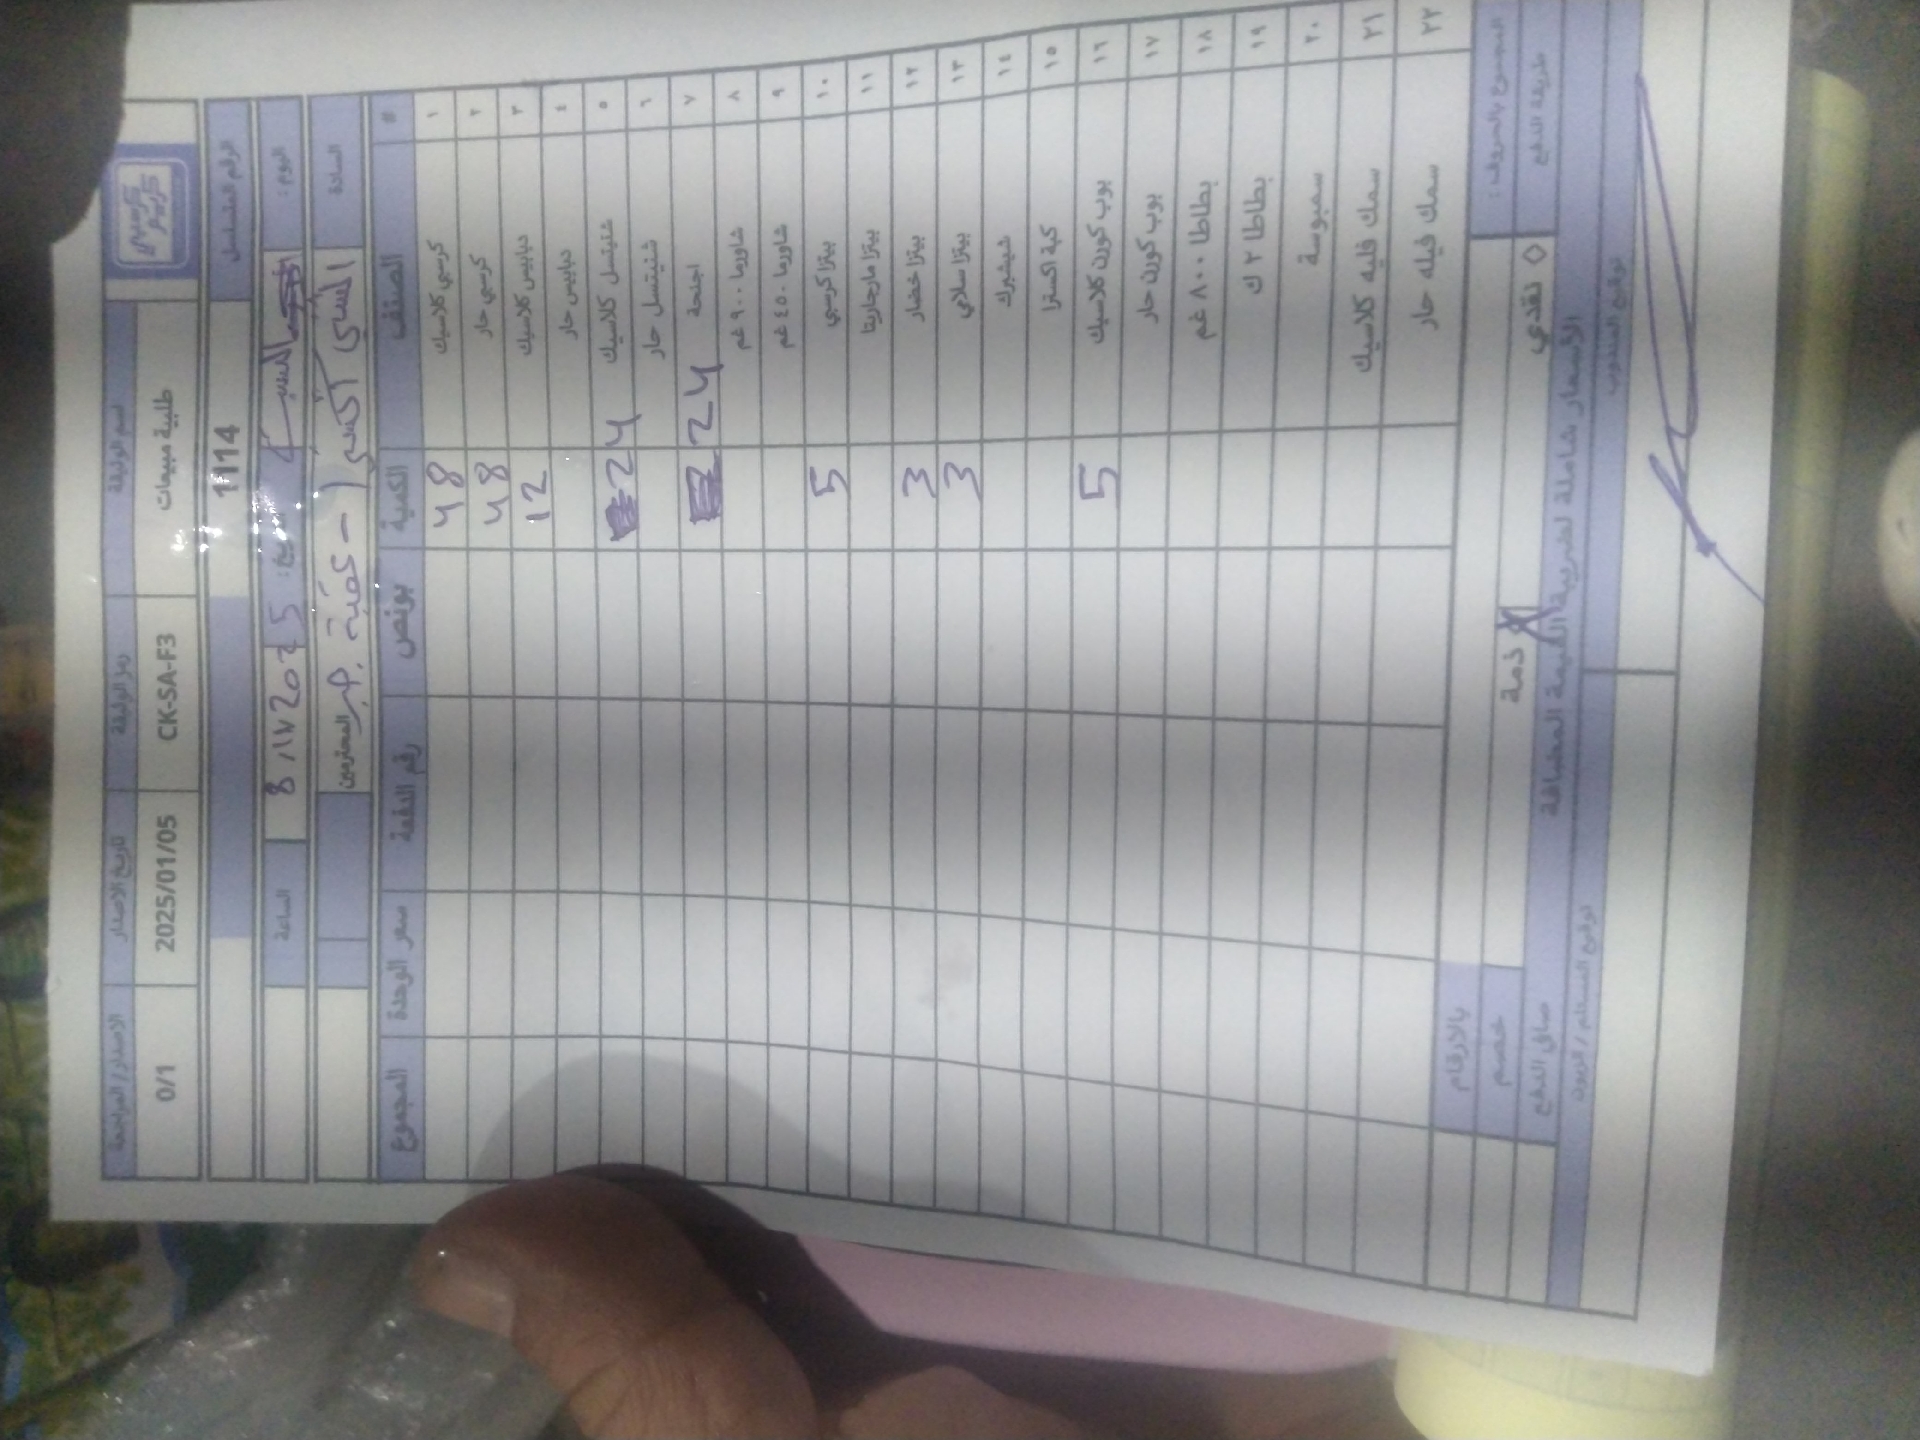 كرسبي كريسب
اسم الوثيقة رمز الوثيقة تاريخ الاصدار الاصدار/ المراجعة
طلبية مبيعات CK-SA-F3 2025/01/05 0/1
الرقم المتسلسل 1114
اليوم: السبت التاريخ: 8/11/2025 الساعة
السادة المحترمين
# الصنف الكمية بونص رقم الطبعة سعر الوحدة المجموع
١ كرسبي كلاسيك 48
٢ كرسبي حار 48
٣ دبابيس كلاسيك 12
٤ دبابيس حار
٥ شنيتسل كلاسيك 24
٦ شنيتسل حار
٧ اجنحة 24
٨ شاورما ٩٠٠ غم
٩ شاورما ٤٥٠ غم
١٠ بيتزا كرسبي 5
١١ بيتزا مارجاريتا
١٢ بيتزا خضار 3
١٣ بيتزا سلامي 3
١٤ شيشبرك
١٥ كبة اكسترا
١٦ بوب كورن كلاسيك 5
١٧ بوب كورن حار
١٨ بطاطا ٨٠٠ غم
١٩ بطاطا ٢ ك
٢٠ سمبوسة
٢١ سمك فليه كلاسيك
٢٢ سمك فيله حار
المجموع بالحروف: بالارقام
خصم
طريقة الدفع ◇ نقدي ذمة صافي الدفع
الأسعار شاملة لضريبة القيمة المضافة
توقيع المندوب توقيع المستلم / الزبون